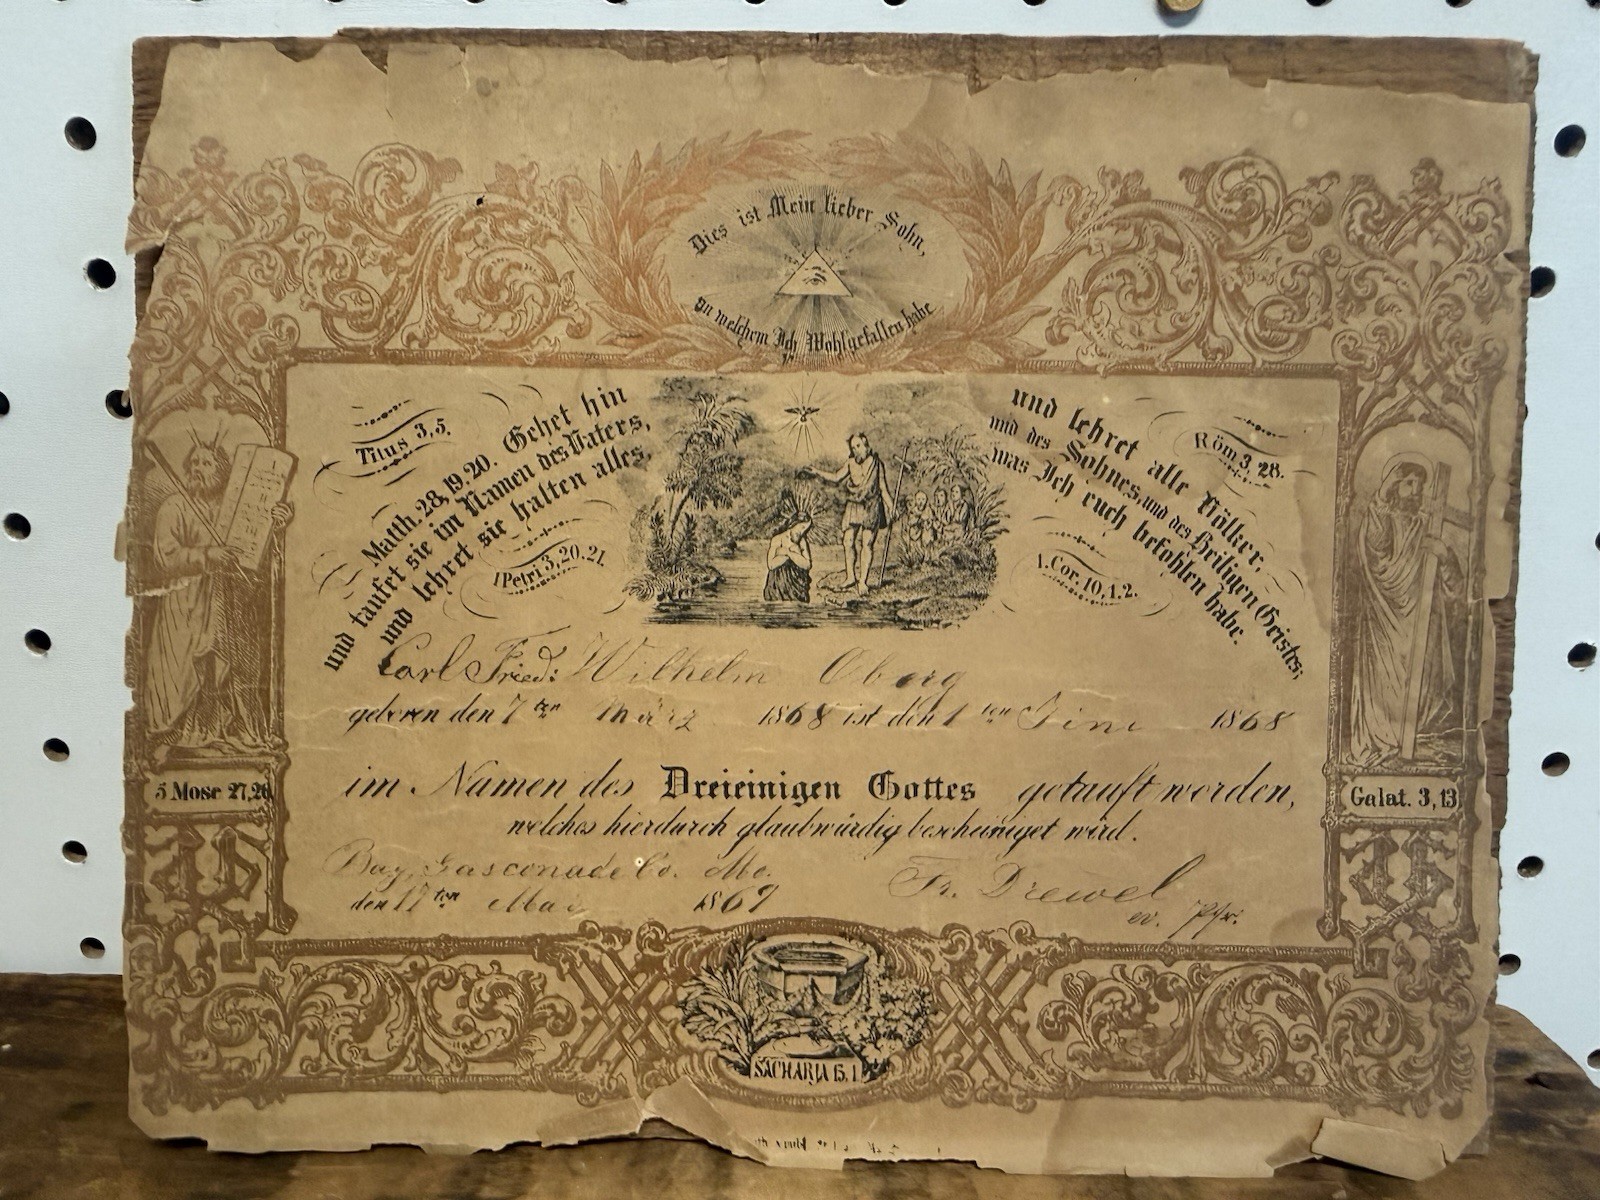 Dies ist Mein lieber Sohn,
an welchem Ich Wohlgefallen habe
Titus 3,5.
Matth. 28, 19. 20. Gehet hin und lehret alle Völker.
und taufet sie im Namen des Vaters, und des Sohnes, und des Heiligen Geistes;
und lehret sie halten alles, was Ich euch befohlen habe.
Röm. 3, 28.
1 Petri 3, 20. 21.
1. Cor. 10, 1. 2.
Carl Fried: Wilhelm Oberg
geboren den 7ten März 1868 ist den 1ten Juni 1868
im Namen des Dreieinigen Gottes getauft worden,
welches hierdurch glaubwürdig bescheiniget wird.
Bay, Gasconade Co. Mo.
den 17ten Mai 1869
Fr. Drewel
ev. Pfr.
5 Mose 27, 26
Galat. 3, 13
SACHARJA 13, 1